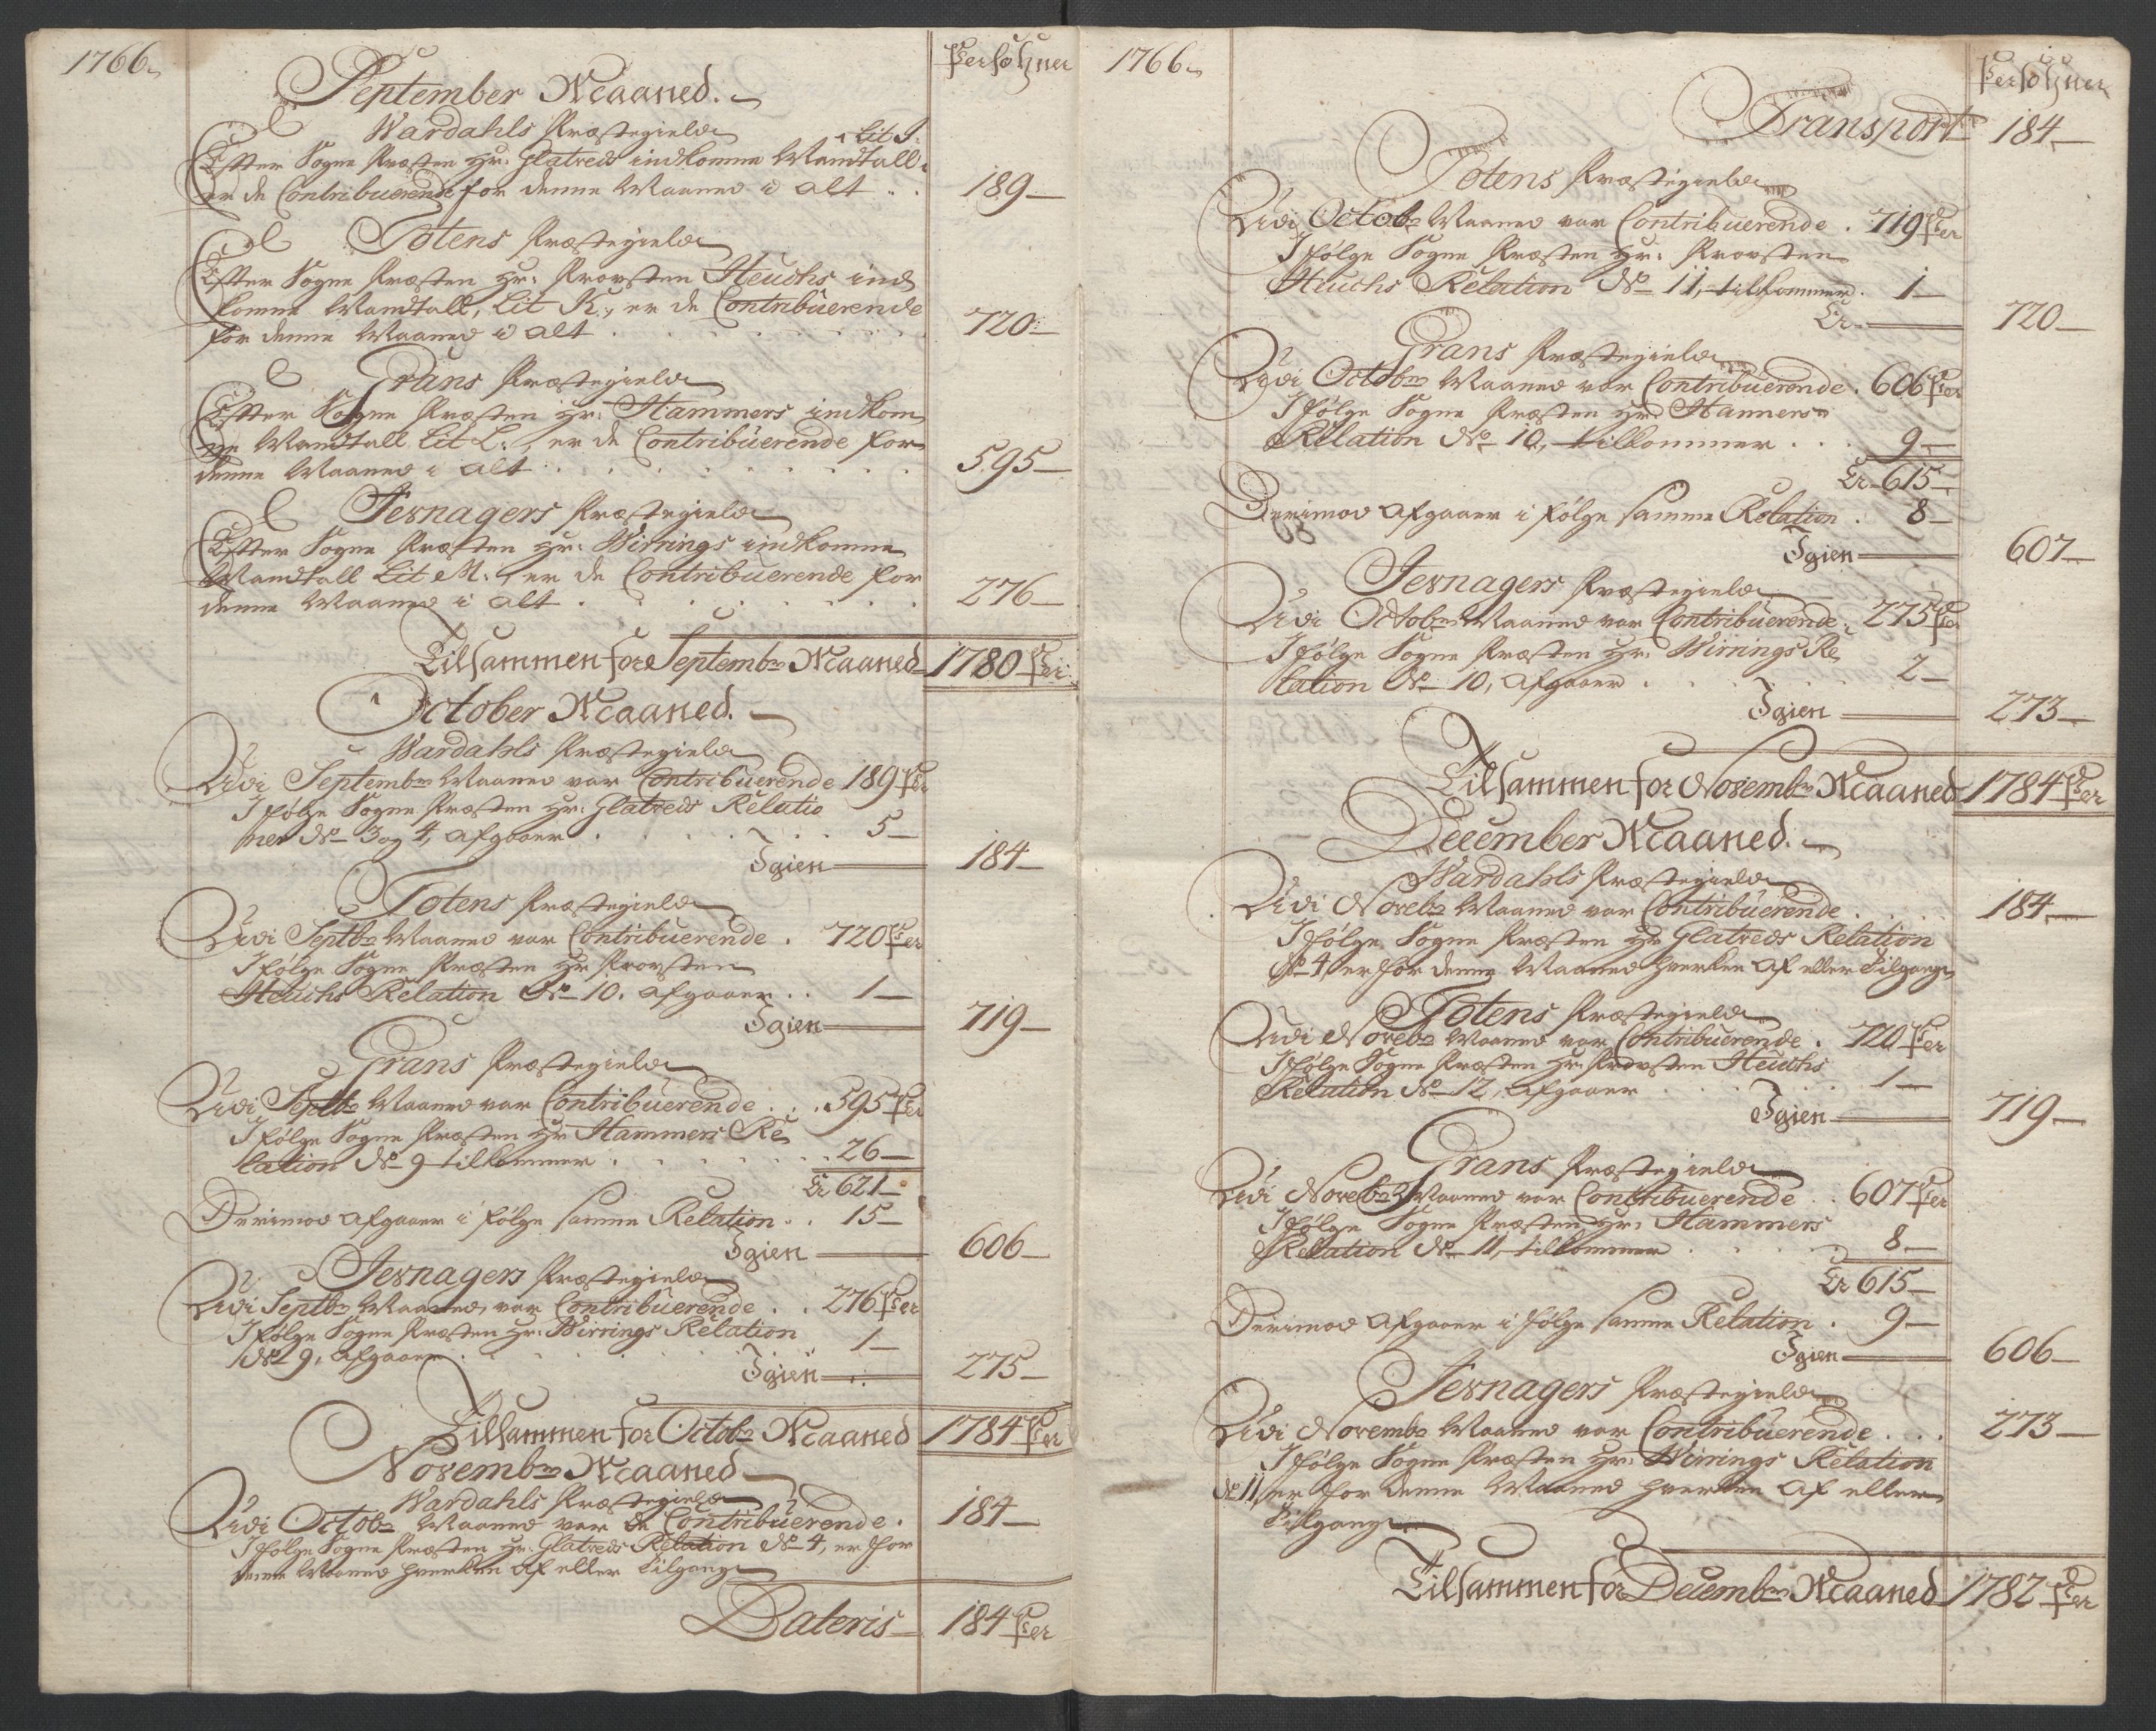 1766.
Persohner
September Maaned.
Wardahls Præstegield
Efter Sogne Præsten Hr. Glatveds indkomne Mandtall, Lit I.
er de Contribuerende for denne Maaned i alt . . 189
Totens Præstegield
Efter Sogne Præsten Hr. Provsten Heuchs ind
komne Mandtall, Lit K., er de Contribuerende
for denne Maaned i alt . . . 720
Grans Præstegield
Efter Sogne Præsten Hr. Hammers indkom
ne Mandtall Lit L., er de Contribuerende for
denne Maaned i alt . . . 595
Jevnagers Præstegield
Efter Sogne Præsten Hr. Wirrings indkomne
Mandtall Lit M., er de Contribuerende for
denne Maaned i alt . . . 276
Tilsammen for Septembr Maaned 1780 Per
October Maaned.
Wardahls Præstegield
Udi Septembr Maaned var Contribuerende 189 Per
Ifølge Sogne Præsten Hr. Glatveds Relatio
ner No 3 og 4, afgaaer . . . 5
Igien 184
Totens Præstegield
Udi Septbr Maaned var Contribuerende . 720 Per
Ifølge Sogne Præsten Hr Provsten
Heuchs Relation No 10. afgaaer . . 1
Igien 719
Grans Præstegield
Udi Septbr Maaned var Contribuerende . . . 595 Per
Ifølge Sogne Præsten Hr Hammers Re
lation No 9 tilkommer . . . 26
Er 621
Derimod afgaaer i følge samme Relation . . 15
Igien 606
Jevnagers Præstegield
Udi Septbr Maaned, var Contribuerende . . 276 Per
Ifølge Sogne Præsten Hr. Wirrings Relation
No 9, afgaaer . . . 1
Igien 275
Tilsammen for Octobr Maaned 1784 Per
Novembr Maaned
Wardahls Præstegield
Udi Octobr Maaned var de Contribuerende . 184
Ifølge Sogne Præsten Hr. Glatveds Relation No 4, er for
denne Maaned hverken Af eller Tilgang
Lateris 184 Per
1766.
Persohner
Transport 184
Totens Præstegield
Udi Octobr Maaned var Contribuerende . 719 Per
Ifølge Sogne Præsten Hr. Provsten
Heuchs Relation No 11, tilkommer . 1
Er 720
Grans Præstegield
Udi Octobr Maaned var Contribuerende . 606 Per
Ifølge Sogne Præsten Hr. Hammers
Relation No 10, tilkommer . . . 9
Er 615
Derimod afgaaer i følge samme Relation . 8
Igien 607
Jevnagers Præstegield
Udi Octobr Maaned var Contribuerende . 275 Per
Ifølge Sogne Præsten Hr. Wirrings Re
lation No 10, afgaaer . . . 2
Igien 273
Tilsammen for Novembr Maaned 1784 Per
December Maaned.
Wardahls Præstegield
Udi Novebr Maaned var Contribuerende . . . 184
Ifølge Sogne Præsten Hr Glatveds Relation
No 4, er for denne Maaned hverken Af eller Tilgang
Totens Præstegield
Udi Novebr Maaned var Contribuerende . 720 Per
Ifølge Sogne Præsten Hr. Provsten Heuchs
Relation No 12, afgaaer . . . 1
Igien 719
Grans Præstegield
Udi Novebr Maaned var Contribuerende . . 607 Per
Ifølge Sogne Præsten Hr. Hammers
Relation No 11, tilkommer . . . 8
Er 615
Derimod afgaaer i følge samme Relation . 9
Igien 606
Jevnagers Præstegield
Udi Novembr Maaned var Contribuerende . . . 273
Ifølge Sogne Præsten Hr. Wirrings Relation
No 11, er for denne Maaned hverken Af eller
Tilgang
Tilsammen for Decembr Maaned 1782 Per